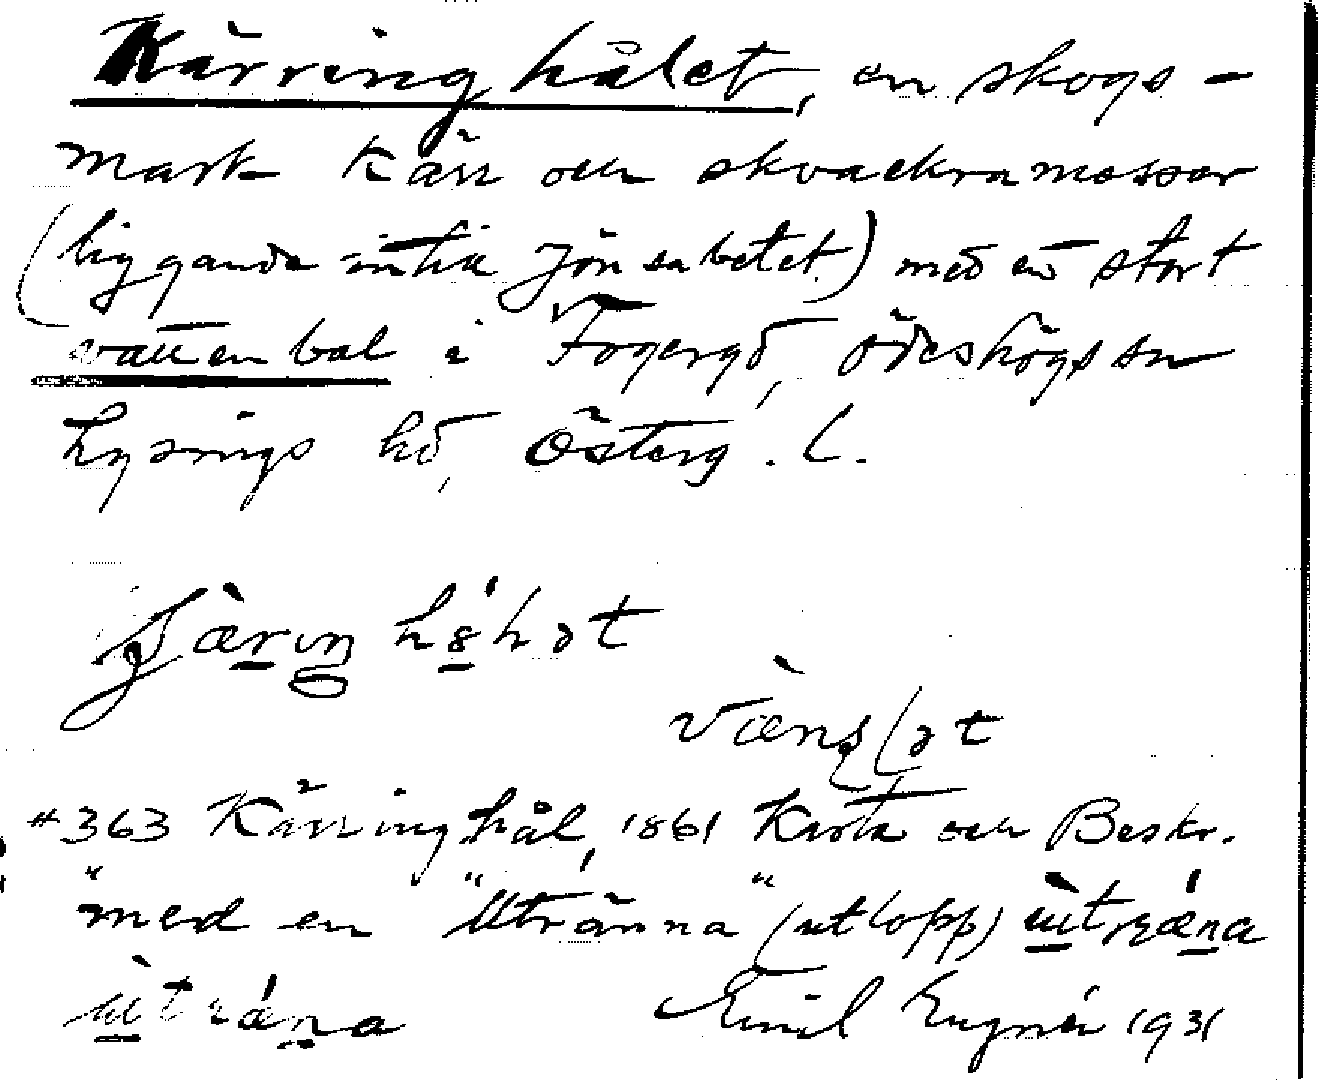 Kärringhålet, en skogs-
mark kärr och skvackramossar
(liggande intill Jönsabetet) med en stort
vattenbål i Fogeryd, Ödeshögs sn
Lysings hd, Österg. L.
hǿhət
#363 Kärringhål, 1861 Karta och Beskr.
"med en "Utränna" (utlopp) ùtrǽna
ùtrǽna Emil Lugnér 1931